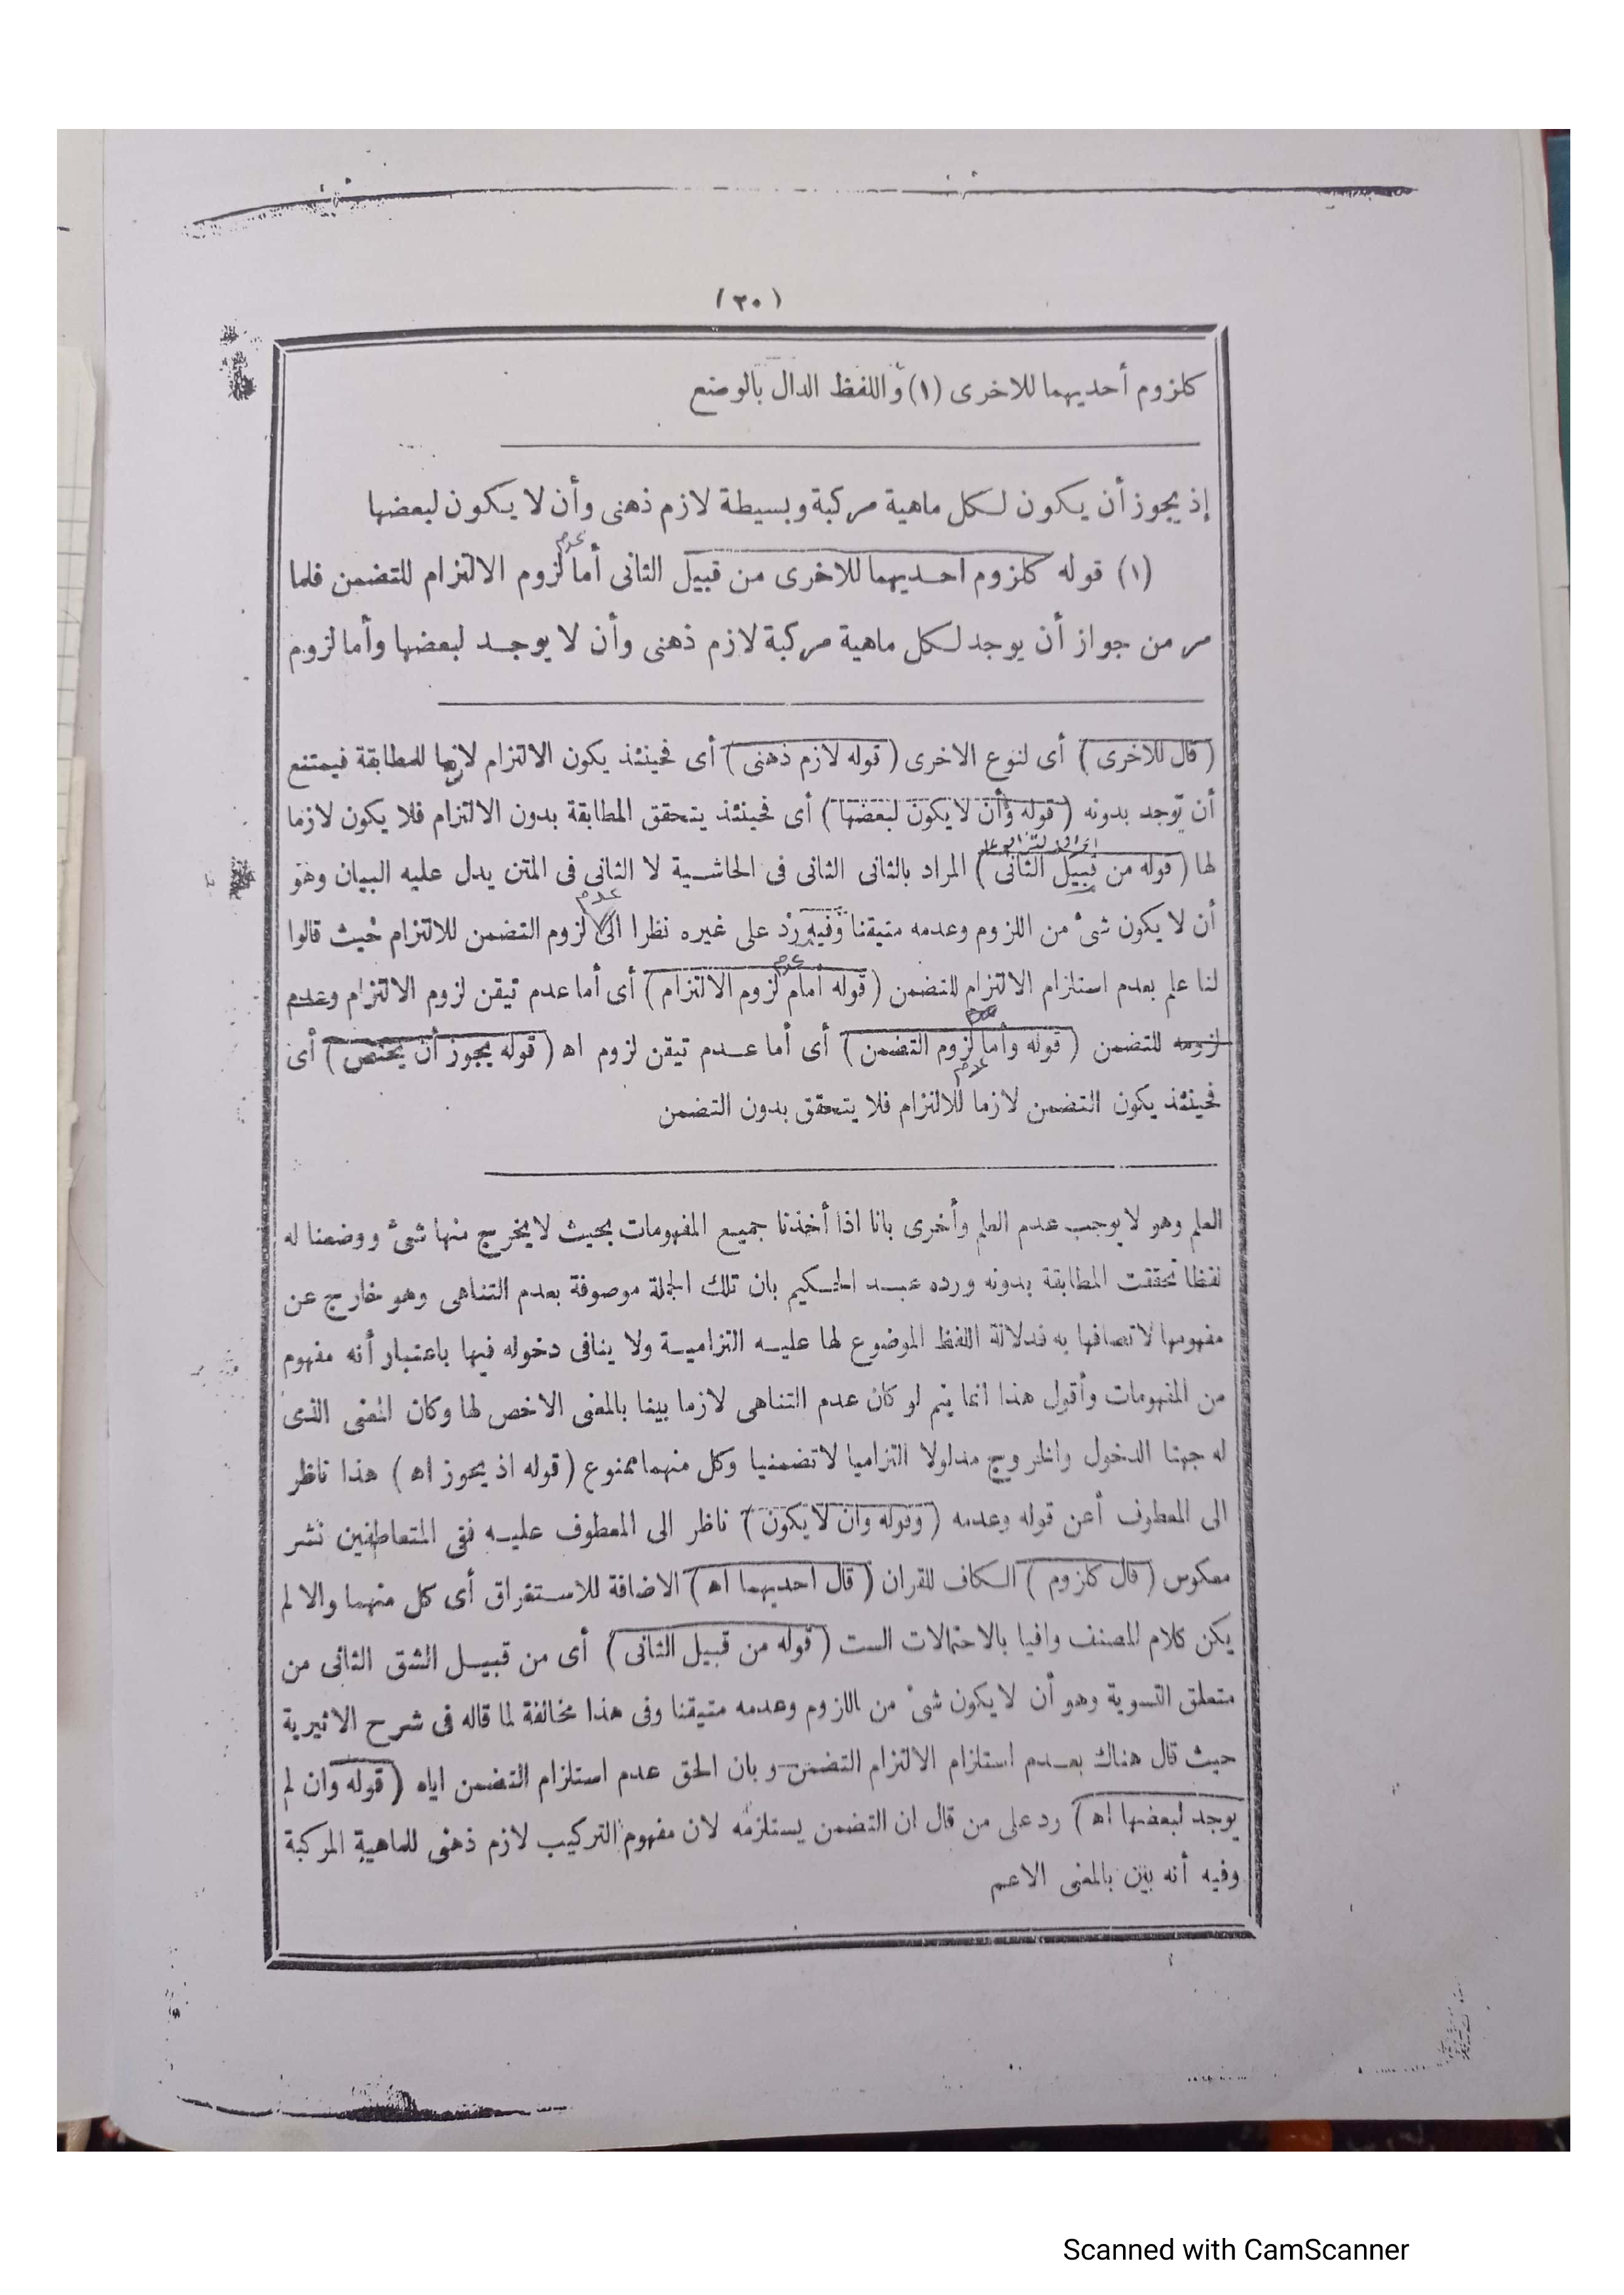 (٢٠)
كلزوم أحديهما للاخرى (١) واللفظ الدال بالوضع
إذ يجوز أن يكون لكل ماهية مركبة وبسيطة لازم ذهنى وأن لا يكون لبعضها
عدم
(١) قوله كلزوم احديهما للاخرى من قبيل الثانى أما لزوم الالتزام للتضمن فلما
مر من جواز أن يوجد لكل ماهية مركبة لازم ذهنى وأن لا يوجد لبعضها وأما لزوم
(قال للاخرى) أى لنوع الاخرى (قوله لازم ذهنى) أى فحينئذ يكون الالتزام لازما للمطابقة فيمتنع
أن توجد بدونه (قوله وأن لا يكون لبعضها) أى فحينئذ يتحقق المطابقة بدون الالتزام فلا يكون لازما
لها (قوله من قبيل الثانى) المراد بالثانى الثانى فى الحاشية لا الثانى فى المتن يدل عليه البيان وهو
عدم
أن لا يكون شئ من اللزوم وعدمه متيقنا وفيه رد على غيره نظرا الى لزوم التضمن للالتزام حيث قالوا
عدم
لنا علم بعدم استلزام الالتزام للتضمن (قوله أمام لزوم الالتزام) أى أما عدم تيقن لزوم الالتزام وعدم
لزومه للتضمن (قوله وأما لزوم التضمن) أى أما عدم تيقن لزوم اه (قوله يجوز أن يختص) أى
عدم
فحينئذ يكون التضمن لازما للالتزام فلا يتحقق بدون التضمن
العلم وهو لا يوجب عدم العلم وأخرى بانا اذا أخذنا جميع المفهومات بحيث لا يخرج منها شئ ووضعنا له
لفظا تحققت المطابقة بدونه ورده عبد الحكيم بان تلك الجملة موصوفة بعدم التناهى وهو خارج عن
مفهومها لاتصافها به فدلالة اللفظ الموضوع لها عليه التزامية ولا ينافى دخوله فيها باعتبار أنه مفهوم
من المفهومات وأقول هذا انما يتم لو كان عدم التناهى لازما بينا بالمعنى الاخص لها وكان المعنى الذى
له جهتا الدخول والخروج مدلولا التزاميا لا تضمنيا وكل منهما ممنوع (قوله اذ يجوز اه) هذا ناظر
الى المعطوف أعن قوله وعدمه (وقوله وان لا يكون) ناظر الى المعطوف عليه ففى المتعاطفين نشر
معكوس (قال كلزوم) الكاف للقران (قال احديهما اه) الاضافة للاستغراق أى كل منهما والا لم
يكن كلام المصنف وافيا بالاحتمالات الست (قوله من قبيل الثانى) أى من قبيل الشق الثانى من
متعلق التسوية وهو أن لا يكون شئ من اللزوم وعدمه متيقنا وفى هذا مخالفة لما قاله فى شرح الاثيرية
حيث قال هناك بعدم استلزام الالتزام التضمن وبان الحق عدم استلزام التضمن اياه (قوله وان لم
يوجد لبعضها اه) رد على من قال ان التضمن يستلزمه لان مفهوم التركيب لازم ذهنى للماهية المركبة
وفيه أنه بين بالمعنى الاعم
Scanned with CamScanner